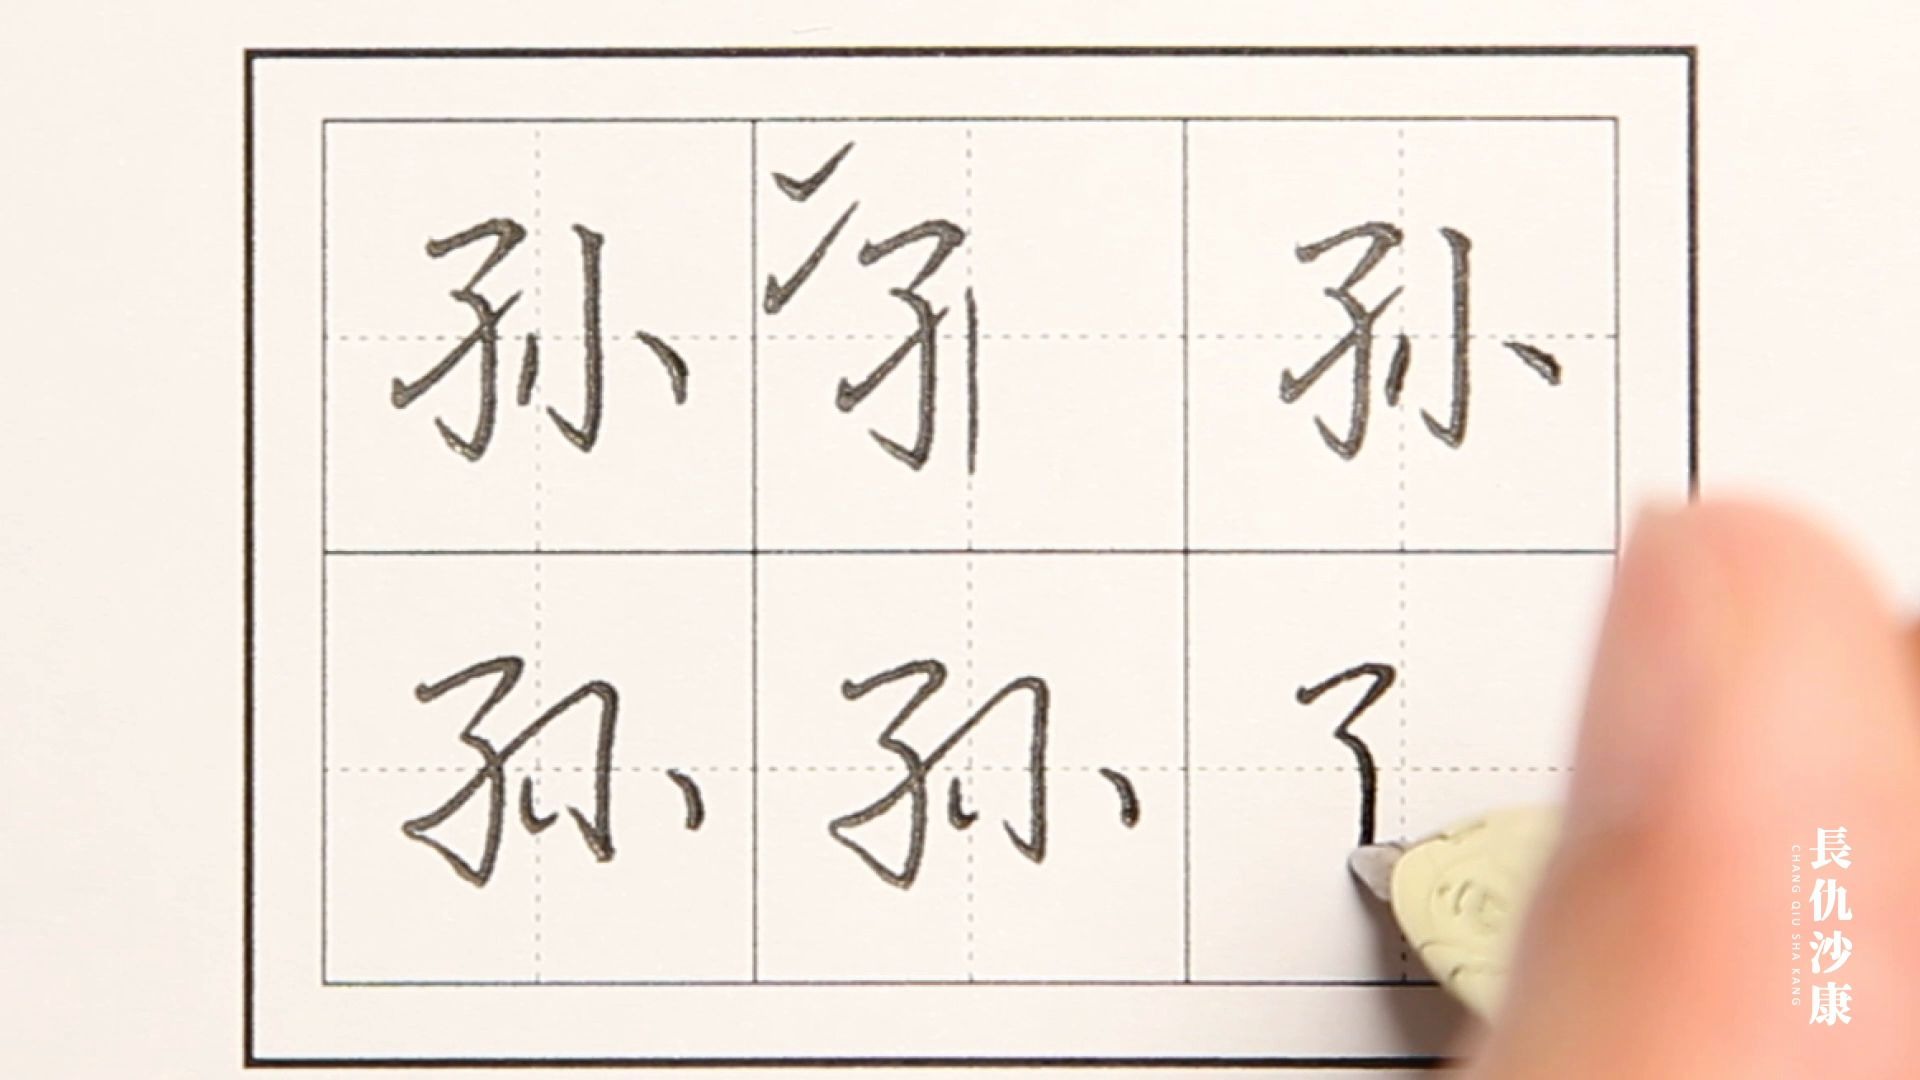 孙 孙
孙 孙
長仇沙康
CHANG QIU SHA KANG